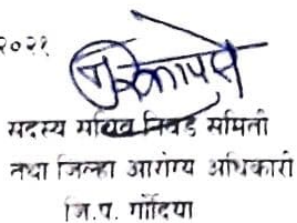 २०२१
सदस्य सचिव निवड समिती
तथा जिल्हा आरोग्य अधिकारी
जि.प. गोंदिया